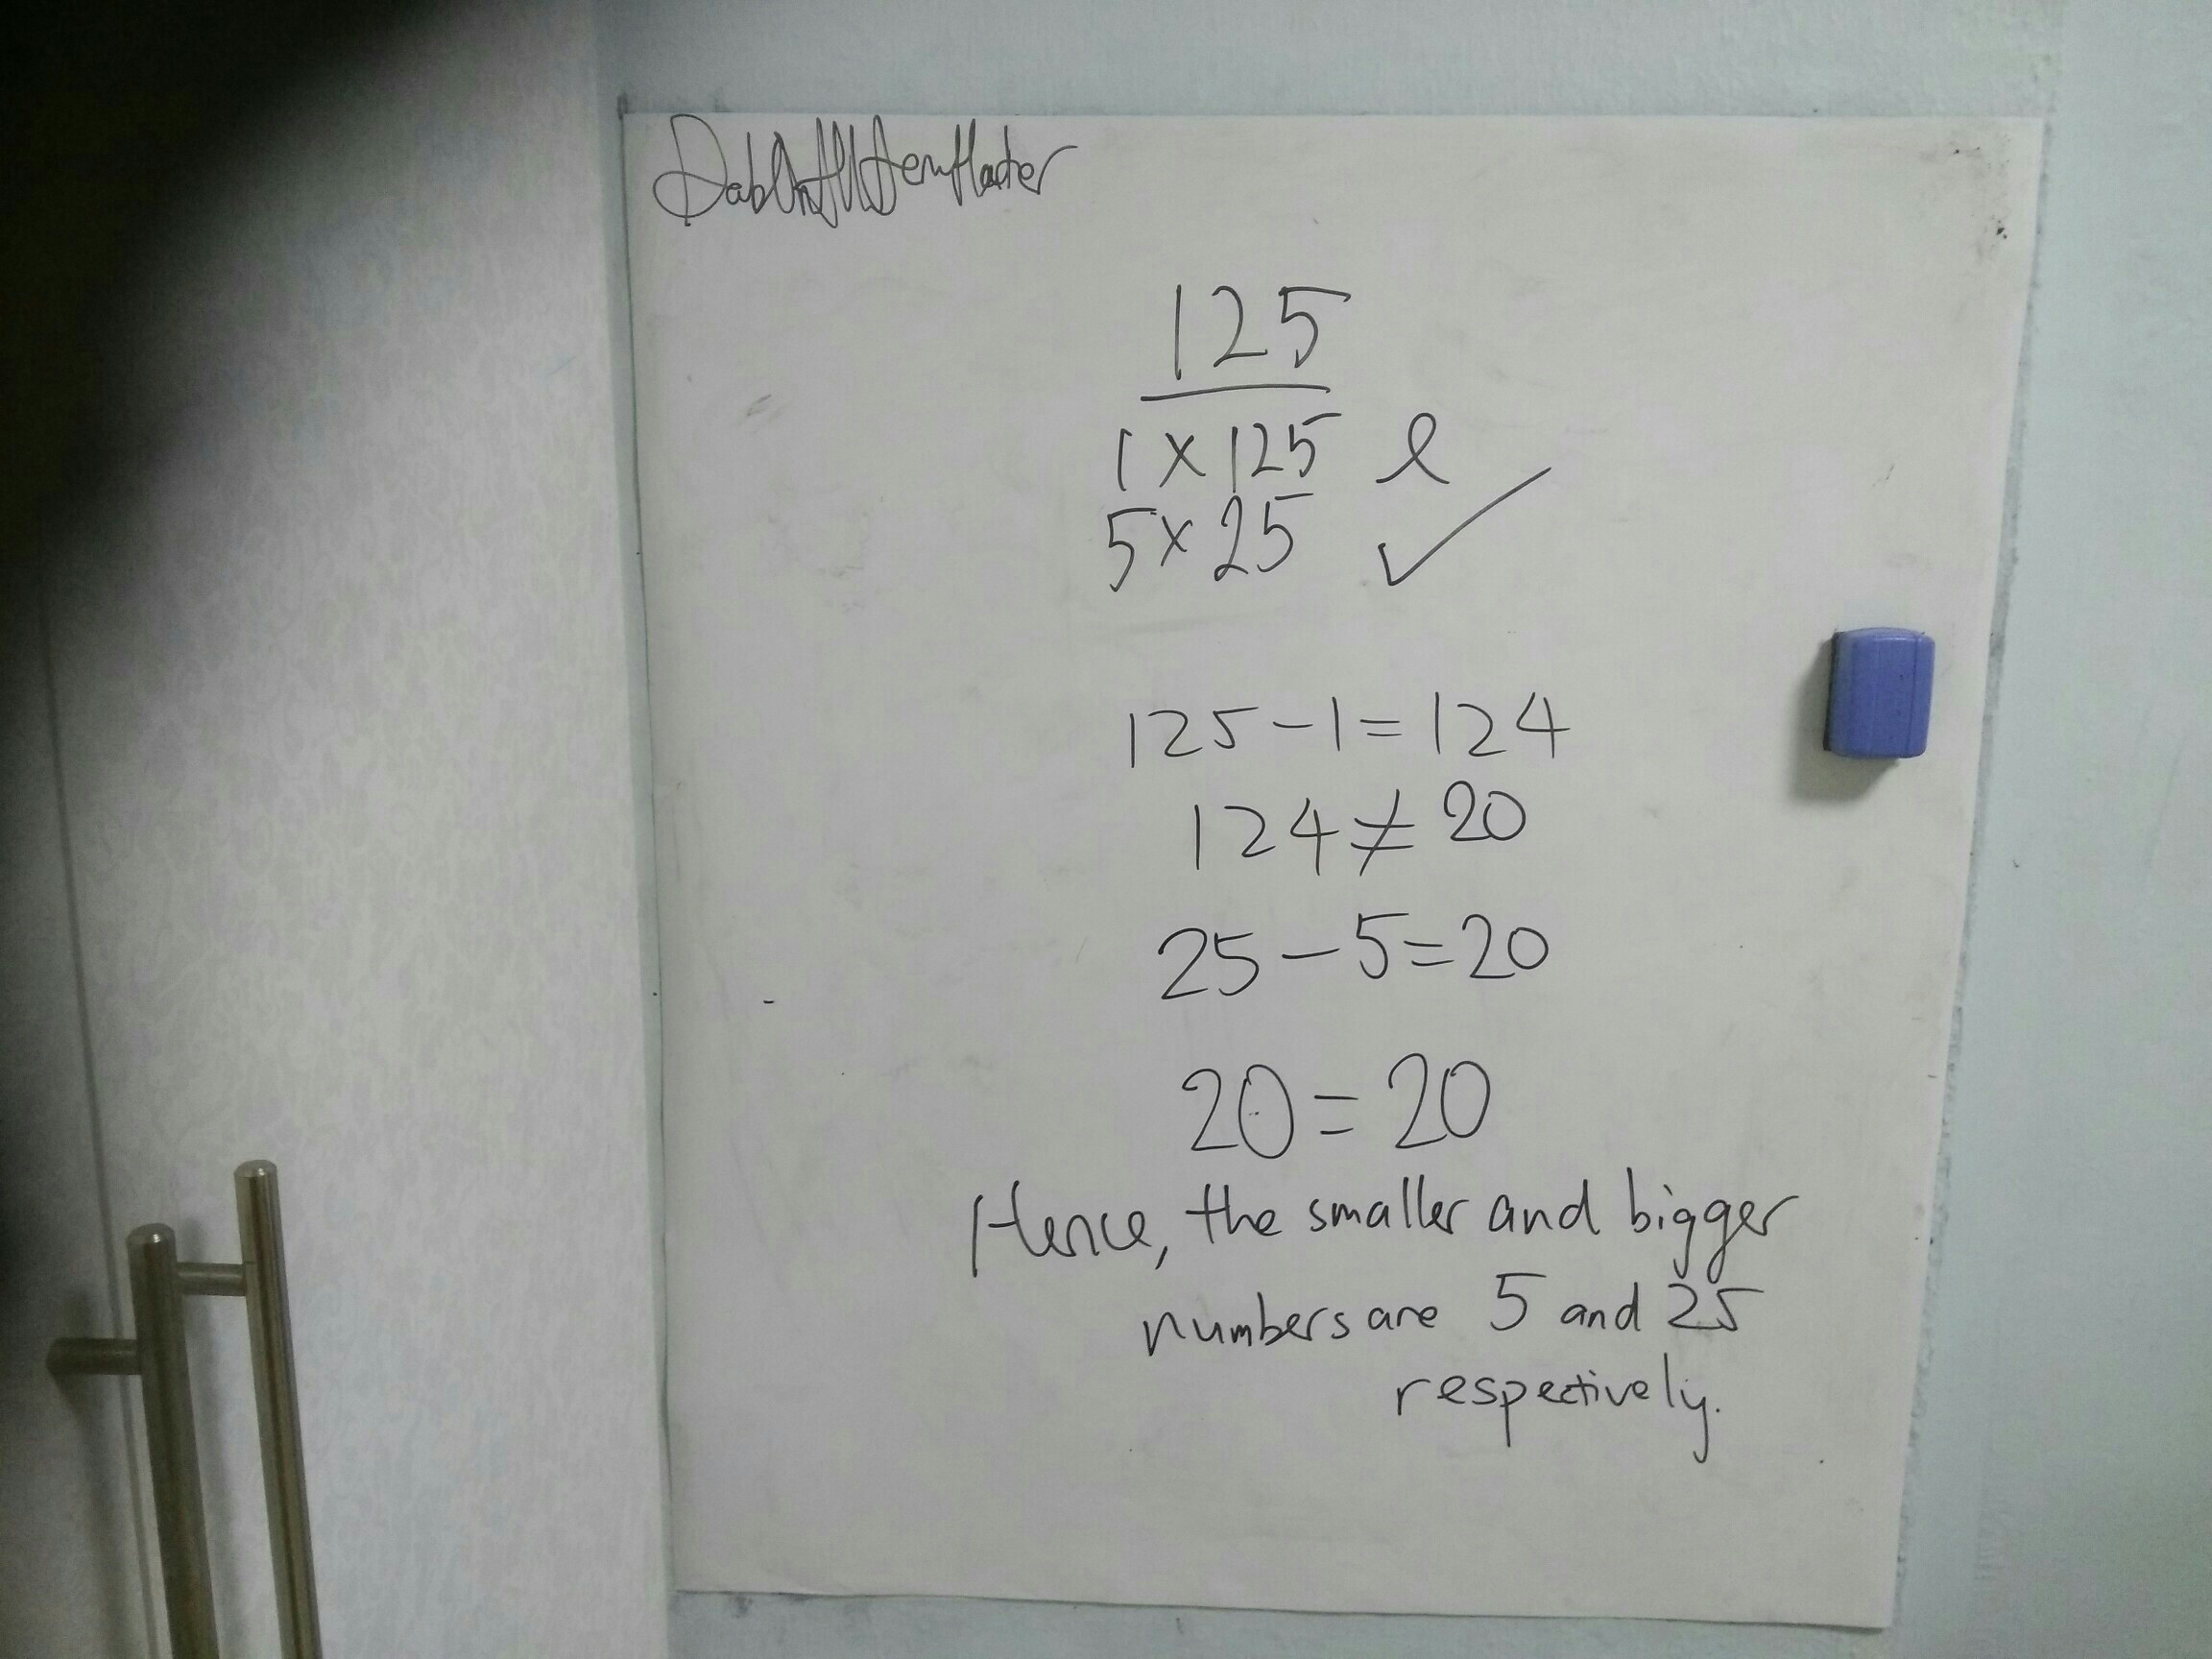 125
1 × 125
5 × 25 ✓
125 - 1 = 124
124 ≠ 20
25 - 5 = 20
20 = 20
Hence, the smaller and bigger
numbers are 5 and 25
respectively.